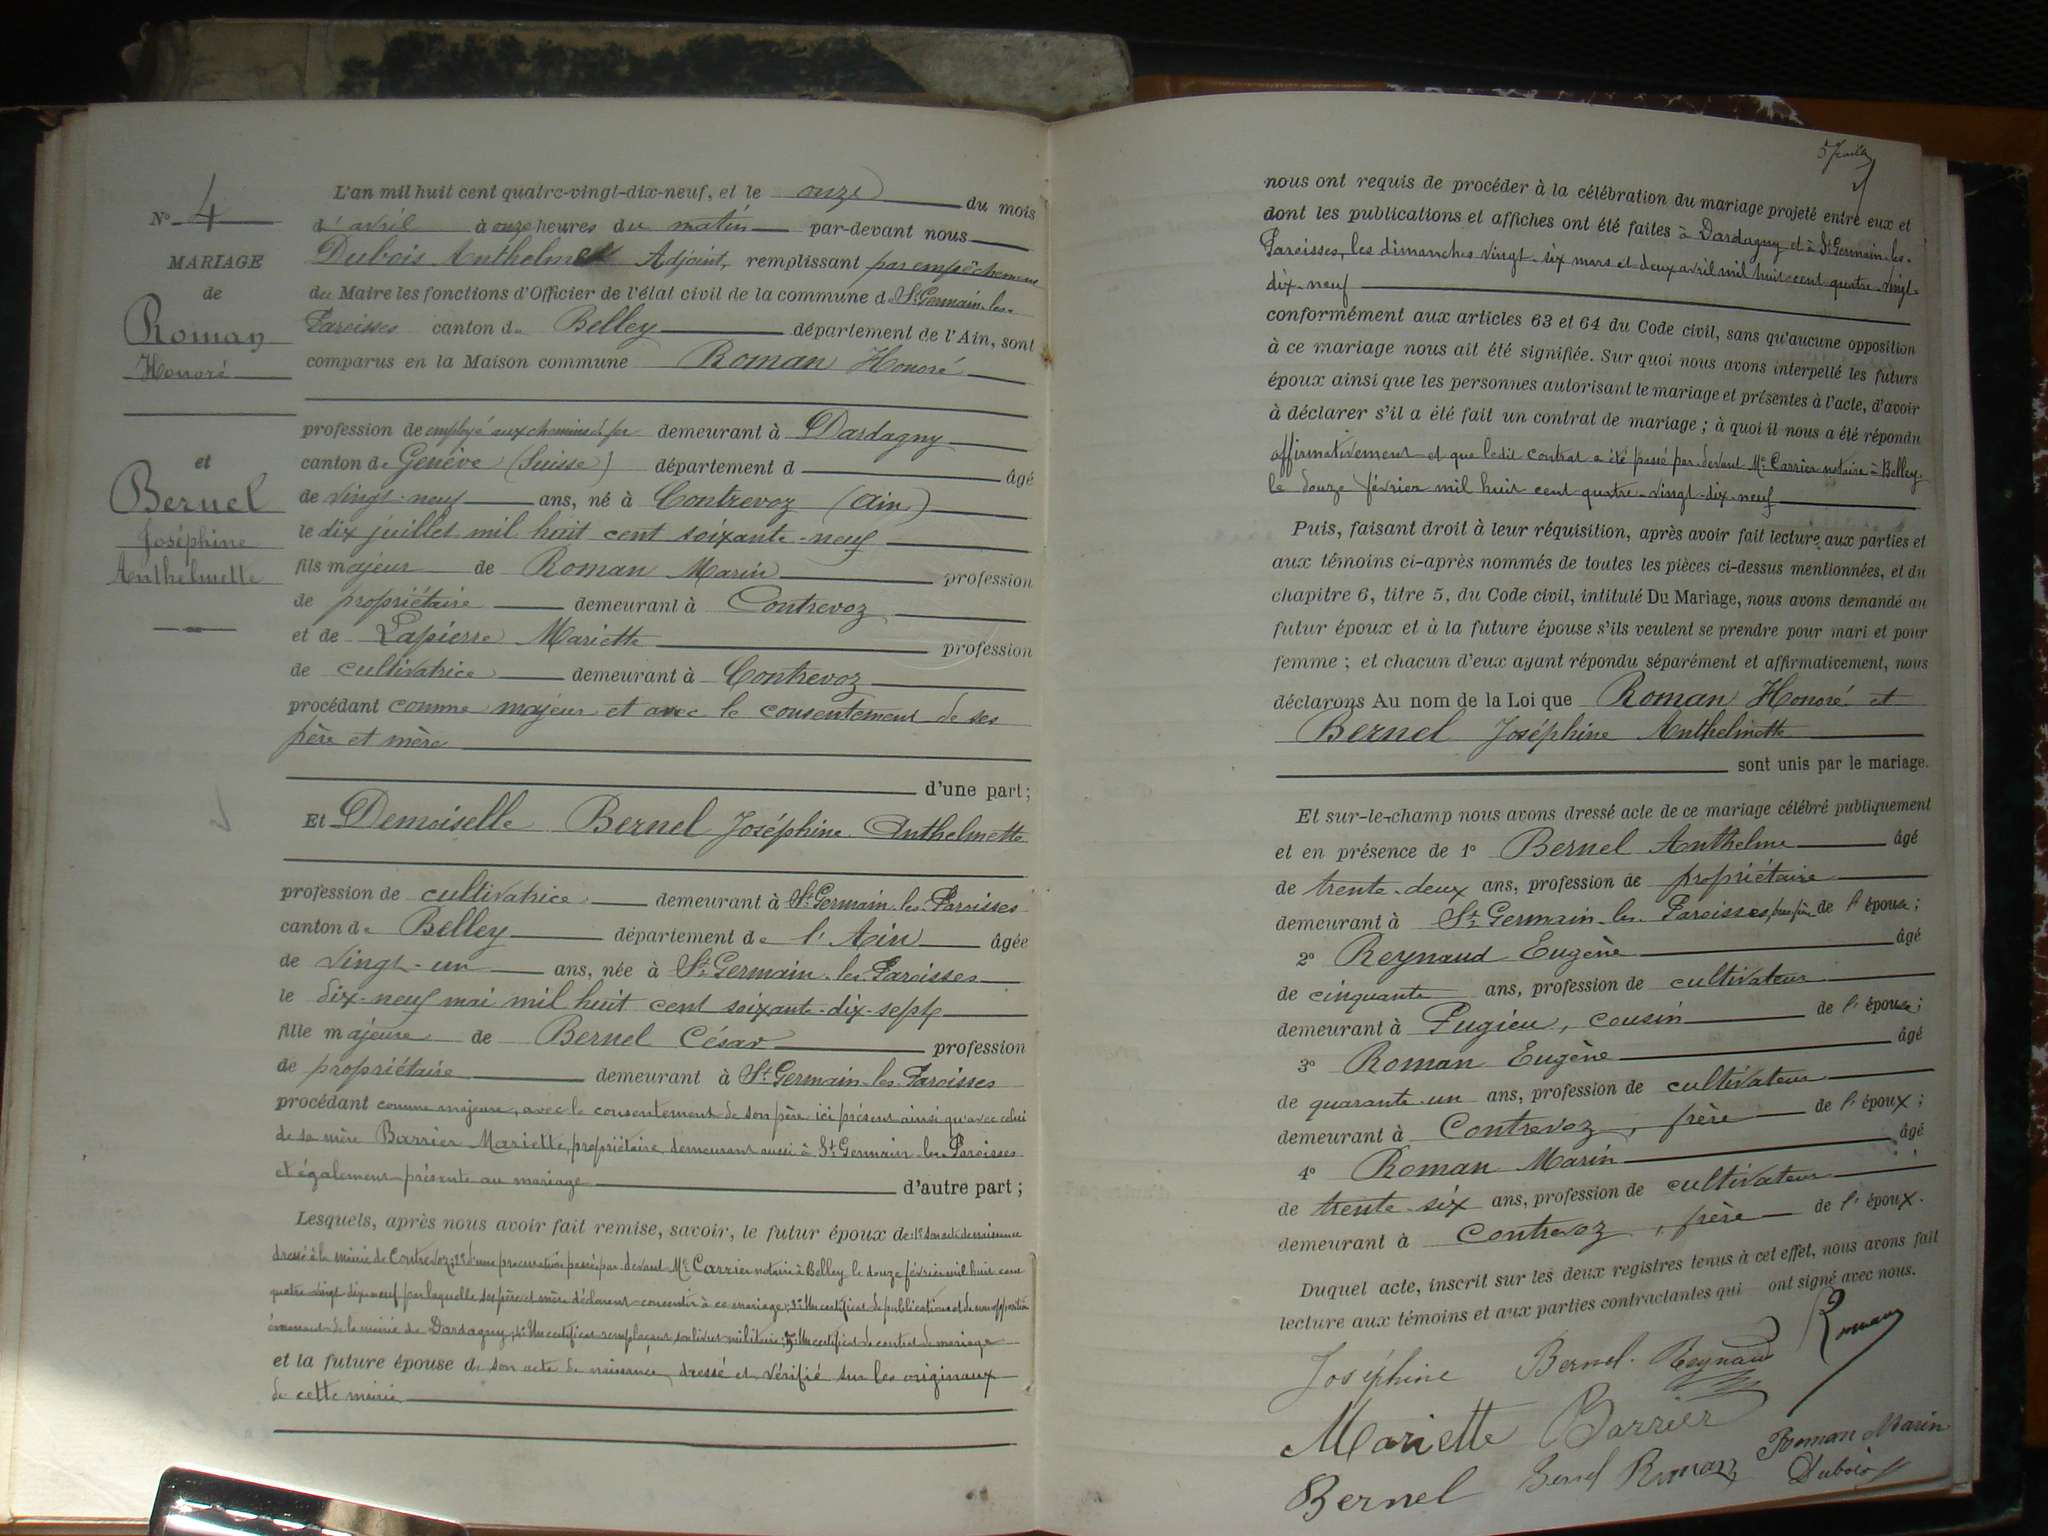 N° 4
MARIAGE
de
Roman
Honoré
et
Bernel
Joséphine
Anthelmette
L'an mil huit cent quatre-vingt-dix-neuf, et le onze du mois
d'avril à onze heures du matin par-devant nous
Dubois Anthelme Adjoint, remplissant par empêchement
du Maire les fonctions d'Officier de l'état civil de la commune d St Germain-les-
Paroisses canton de Belley département de l'Ain, sont
comparus en la Maison commune Roman Honoré
profession de employé aux chemins de fer demeurant à Dardagny
canton de Genève (Suisse) département d âgé
de vingt-neuf ans, né à Contrevoz (Ain)
le dix juillet mil huit cent soixante-neuf
fils majeur de Roman Marin profession
de propriétaire demeurant à Contrevoz
et de Lapierre Mariette profession
de cultivatrice demeurant à Contrevoz
procédant comme majeur et avec le consentement de ses
père et mère
d'une part;
Et Demoiselle Bernel Joséphine Anthelmette
profession de cultivatrice demeurant à St Germain-les-Paroisses
canton de Belley département de l'Ain âgée
de vingt-un ans, née à St Germain-les-Paroisses
le dix-neuf mai mil huit cent soixante-dix-sept
fille majeure de Bernel César profession
de propriétaire demeurant à St Germain-les-Paroisses
procédant comme majeure, avec le consentement de son père ici présent ainsi qu'avec celui
de sa mère Barrier Mariette, propriétaire demeurant aussi à St Germain-les-Paroisses
et également présente au mariage d'autre part;
Lesquels, après nous avoir fait remise, savoir, le futur époux de: 1° son acte de naissance
dressé à la mairie de Contrevoz; 2° d'une procuration passée par-devant Me Carrier notaire à Belley le douze février mil huit cent
quatre-vingt-dix-neuf par laquelle ses père et mère déclarent consentir à ce mariage; 3° Un certificat de publications et de non opposition
émanant de la mairie de Dardagny; 4° Un certificat remplaçant son livret militaire; 5° Un certificat de contrat de mariage
et la future épouse de son acte de naissance dressé et vérifié sur les originaux
de cette mairie
nous ont requis de procéder à la célébration du mariage projeté entre eux et
dont les publications et affiches ont été faites à Dardagny et à St Germain-les-
Paroisses, les dimanches vingt-six mars et deux avril mil huit cent quatre-vingt-
dix-neuf
conformément aux articles 63 et 64 du Code civil, sans qu'aucune opposition
à ce mariage nous ait été signifiée. Sur quoi nous avons interpellé les futurs
époux ainsi que les personnes autorisant le mariage et présentes à l'acte, d'avoir
à déclarer s'il a été fait un contrat de mariage; à quoi il nous a été répondu
affirmativement et que ledit contrat a été passé par-devant Me Carrier notaire à Belley
le douze février mil huit cent quatre-vingt-dix-neuf
Puis, faisant droit à leur réquisition, après avoir fait lecture aux parties et
aux témoins ci-après nommés de toutes les pièces ci-dessus mentionnées, et du
chapitre 6, titre 5, du Code civil, intitulé Du Mariage, nous avons demandé au
futur époux et à la future épouse s'ils veulent se prendre pour mari et pour
femme; et chacun d'eux ayant répondu séparément et affirmativement, nous
déclarons Au nom de la Loi que Roman Honoré et
Bernel Joséphine Anthelmette
sont unis par le mariage.
Et sur-le-champ nous avons dressé acte de ce mariage célébré publiquement
et en présence de 1° Bernel Anthelme âgé
de trente-deux ans, profession de propriétaire
demeurant à St Germain-les-Paroisses, de l'épouse;
2° Reynaud Eugène âgé
de cinquante ans, profession de cultivateur
demeurant à Pugieu, cousin de l'épouse;
3° Roman Eugène âgé
de quarante-un ans, profession de cultivateur
demeurant à Contrevoz, frère de l'époux;
4° Roman Marin âgé
de trente-six ans, profession de cultivateur
demeurant à Contrevoz, frère de l'époux.
Duquel acte, inscrit sur les deux registres tenus à cet effet, nous avons fait
lecture aux témoins et aux parties contractantes qui ont signé avec nous.
Joséphine Bernel Reynaud Roman
Mariette Barrier Roman Marin
Bernel Bernel Roman Dubois